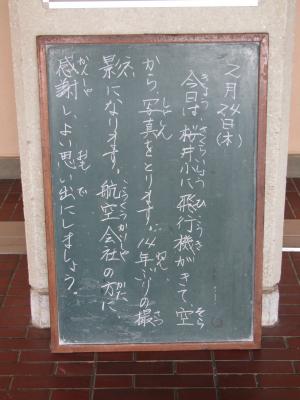 2月24日(木)
今日は、桜井小に飛行機がきて、空
から、写真をとります。14年ぶりの撮
影になります。航空会社の方に、
感謝し、よい思い出にしましょう。